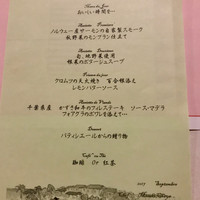 Menu du Jour
おいしい時間を…
ノルウェー産サーモンの自家製スモーク
秋野菜のモンブラン仕立て
旬、地野菜使用
根菜のポタージュスープ
クロムツの天火焼き 百合根添え
レモンバターソース
千葉県産 かずさ和牛のフィレステーキ ソース・マデラ
フォアグラのポワレを添えて…
Dessert
パティシエールからの贈り物
珈琲 Or 紅茶
2017 Septembre